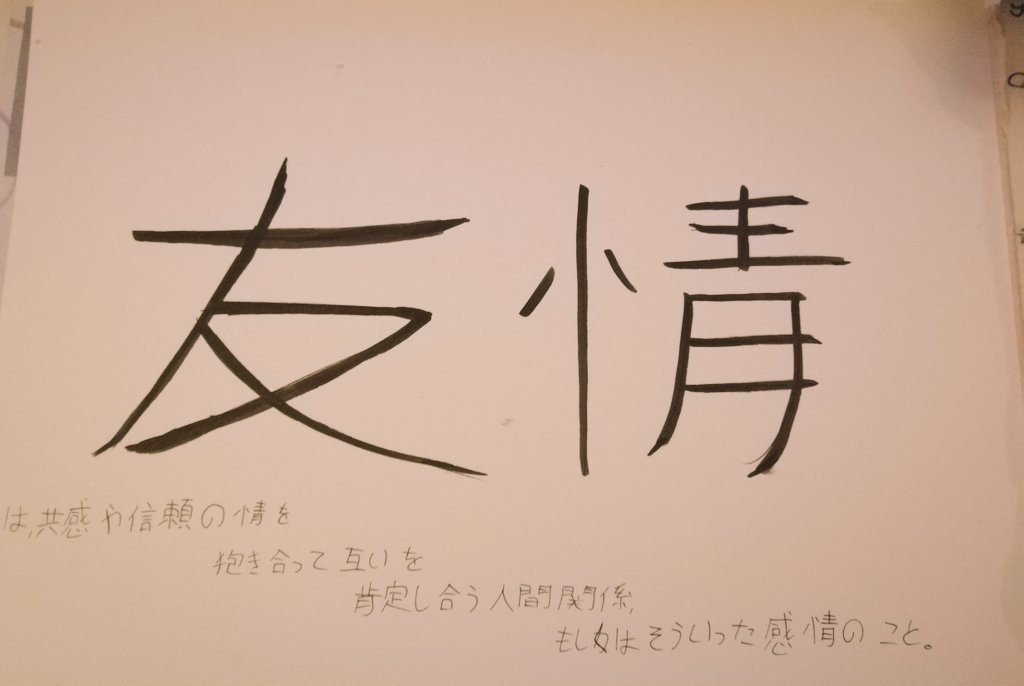 友情
は,共感や信頼の情を
抱き合って互いを
肯定し合う人間関係,
もしくはそういった感情のこと。